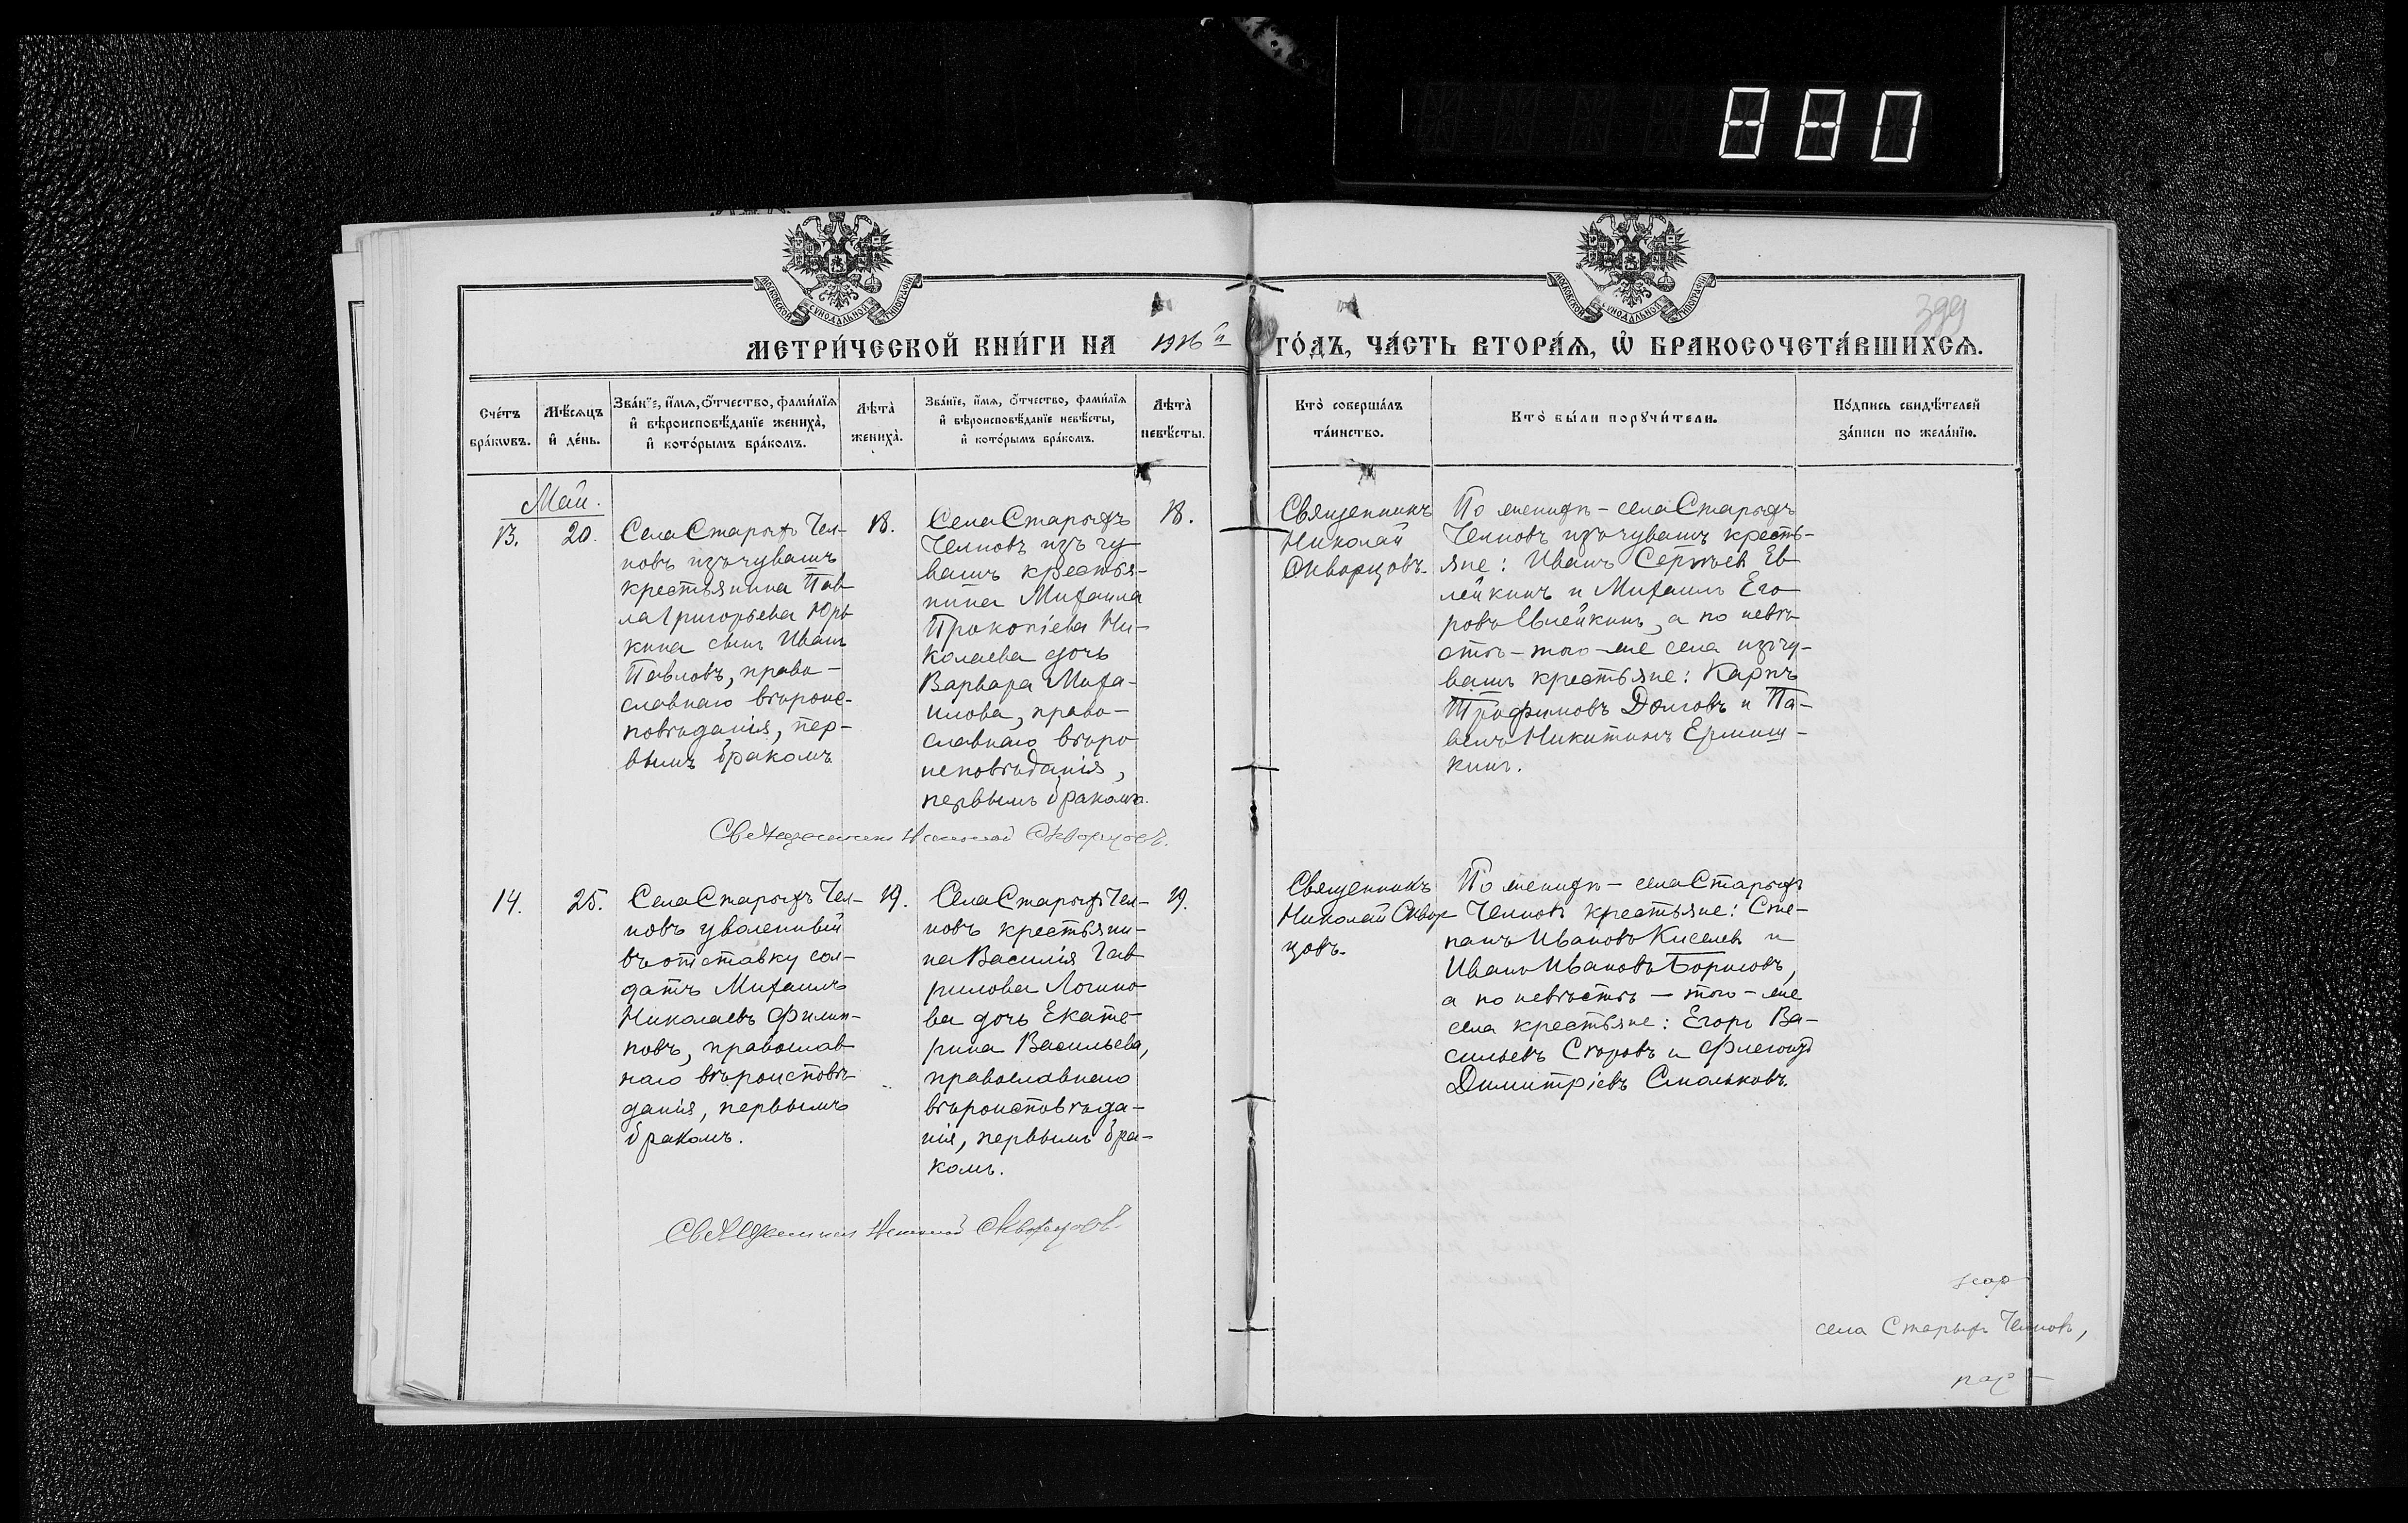 880
399
МЕТРИ́ЧЕСКОЙ КНИ́ГИ НА 1916й ГО́ДЪ, ЧА́СТЬ ВТОРА́Ѧ, Ѡ҆ БРАКОСОЧЕТА́ВШИХСѦ.
МОСКОВСКОЙ СѴНОДАЛЬНОЙ ТИПОГРАФІИ
МОСКОВСКОЙ СѴНОДАЛЬНОЙ ТИПОГРАФІИ
Сче́тъ бра́кѡвъ.
Мѣ́сѧцъ и҆ де́нь.
Зва́нїе, и҆́мѧ, ѻ҆́тчество, фами́лїѧ
и҆ вѣроисповѣ́данїе жениха̀,
и҆ кото́рымъ бра́комъ.
Лѣта̀ жениха̀.
Зва́нїе, и҆́мѧ, ѻ҆́тчество, фами́лїѧ
и҆ вѣроисповѣ́данїе невѣ́сты,
и҆ кото́рымъ бра́комъ.
Лѣта̀ невѣ́сты.
Кто̀ соверша́лъ
та́инство.
Кто̀ бы́ли порꙋчи́тели.
По́дпись свидѣ́телей
за́писи по жела́нїю.
Май.
13.
20.
Села Старыхъ Чел-
новъ изъ чувашъ
крестьянина Пав-
ла Григорьева Юрь
кина сынъ Иванъ
Павловъ, право-
славнаго вѣроис-
повѣданія, пер-
вымъ бракомъ
18.
Села Старыхъ
Челновъ изъ чу
вашъ крестья-
нина Михаила
Прокопіева Ни-
колаева дочь
Варвара Миха-
илова, право-
славнаго вѣро
исповѣданія,
первымъ бракомъ.
18.
Священникъ
Николай
Скворцовъ.
По женихѣ - села Старыхъ
Челновъ изъ чувашъ кресть-
яне: Иванъ Сергѣевъ Ев
лейкинъ и Михаилъ Его
ровъ Евлейкинъ, а по невѣ
стѣ - того-же села изъ чу-
вашъ крестьяне: Карпъ
Трофимовъ Долговъ и Па-
велъ Никитинъ Ермиш-
кинъ.
Священникъ Николай Скворцовъ.
14.
25.
Села Старыхъ Чел-
новъ уволенный
въ отставку сол-
датъ Михаилъ
Николаевъ Филип-
повъ, православ
наго вѣроисповѣ
данія, первымъ
бракомъ.
19.
Села Старыхъ Чел-
новъ крестьяни-
на Василія Гав
рилова Логино
ва дочь Екате-
рина Васильева,
православнаго
вѣроисповѣда-
нія, первымъ бра-
комъ.
19.
Священникъ
Николай Сквор
цовъ.
По женихѣ - села Старыхъ
Челновъ крестьяне: Сте-
панъ Ивановъ Киселевъ и
Иванъ Ивановъ Борисовъ,
а по невѣстѣ - того-же
села крестьяне: Егоръ Ва-
сильевъ и
Димитріевъ Смольковъ.
Священникъ Николай Скворцовъ.
села Старыхъ Челновъ,